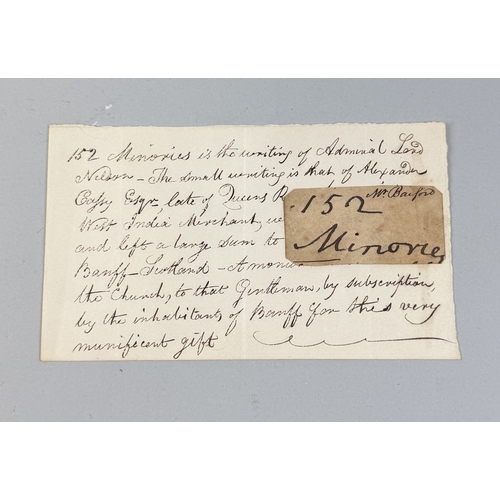 152 Minories is the writing of Admiral Lord
Nelson – The small writing is that of Alexander
Esqr, late of Queens
West India Merchant,
and left a large sum to
Banff – Scotland – A
the Church, to that Gentleman, by subscription,
by the inhabitants of Banff for this very
munificent gift
Mr
152
Minories